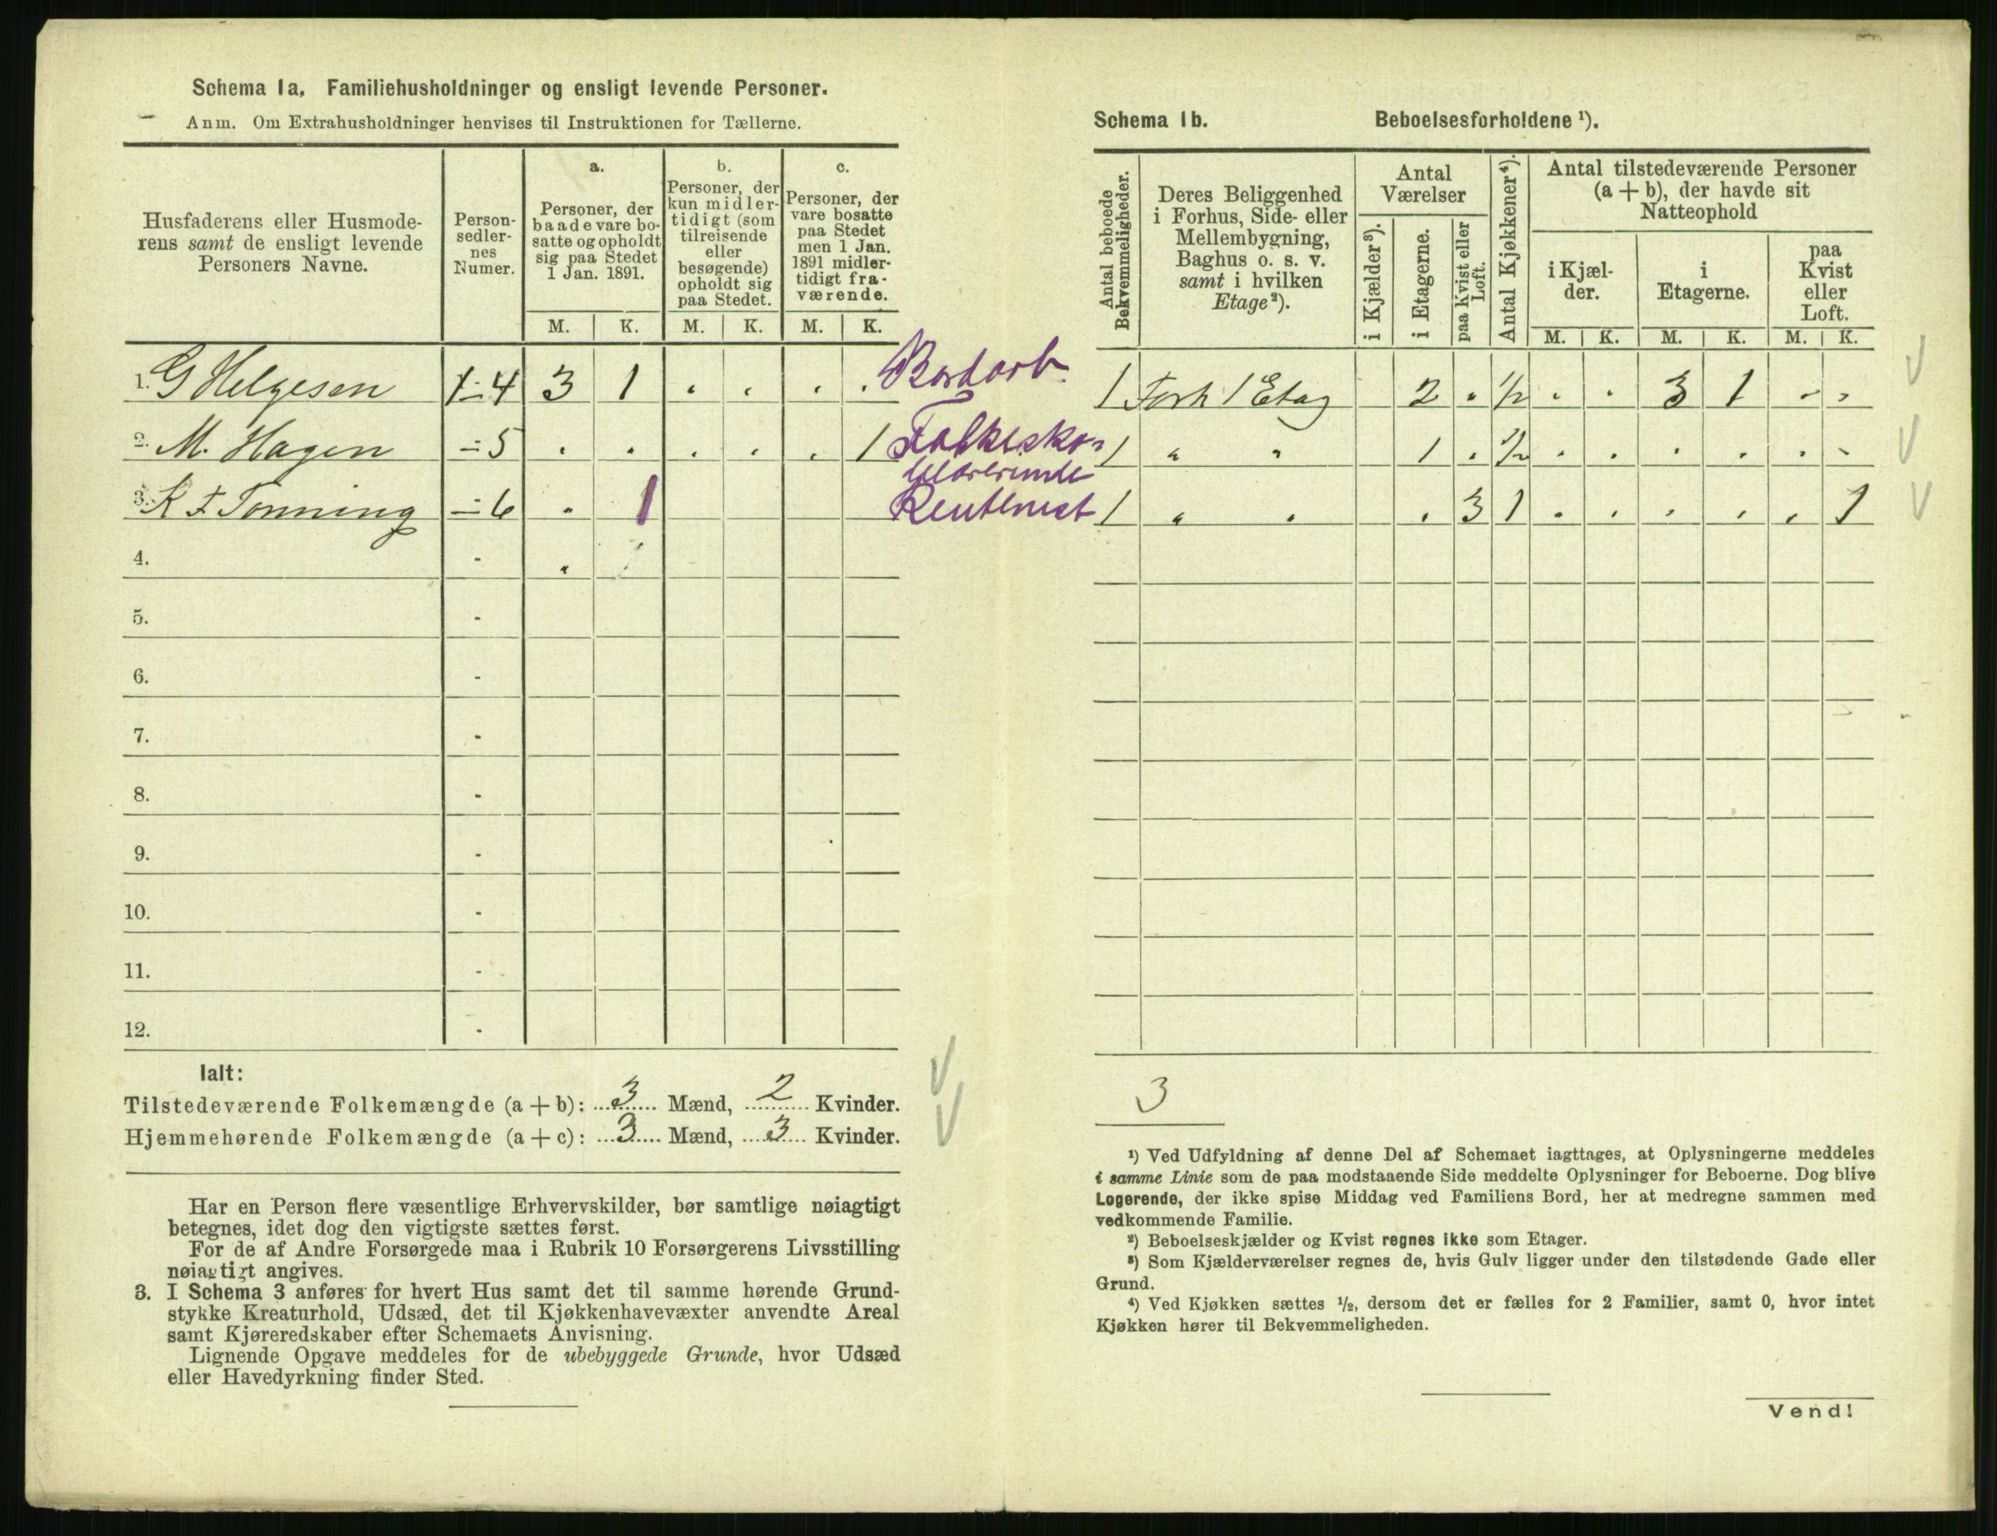 Schema 1a. Familiehusholdninger og ensligt levende Personer.
Anm. Om Extrahusholdninger henvises til Instruktionen for Tællerne.
Husfaderens eller Husmoderens samt de ensligt levende Personers Navne.
Personsedlernes Numer.
a. Personer, der baade vare bosatte og opholdt sig paa Stedet 1 Jan. 1891.
b. Personer, der kun midlertidigt (som tilreisende eller besøgende) opholdt sig paa Stedet.
c. Personer, der vare bosatte paa Stedet men 1 Jan. 1891 midlertidigt fraværende.
M. K. M. K. M. K.
1. G Helgesen 1-4 3 1 . . . .
2. M. Hagen -5 . . . . . 1
3. K F Tonning -6 . 1
4. - .
5. -
6. -
7. -
8. -
9. -
10. -
11. -
12. -
Ialt:
Tilstedeværende Folkemængde (a + b): 3 Mænd, 2 Kvinder.
Hjemmehørende Folkemængde (a + c): 3 Mænd, 3 Kvinder.
Har en Person flere væsentlige Erhvervskilder, bør samtlige nøiagtigt
betegnes, idet dog den vigtigste sættes først.
For de af Andre Forsørgede maa i Rubrik 10 Forsørgerens Livsstilling
nøiagtigt angives.
3. I Schema 3 anføres for hvert Hus samt det til samme hørende Grund-
stykke Kreaturhold, Udsæd, det til Kjøkkenhavevæxter anvendte Areal
samt Kjøreredskaber efter Schemaets Anvisning.
Lignende Opgave meddeles for de ubebyggede Grunde, hvor Udsæd
eller Havedyrkning finder Sted.
Schema 1b. Beboelsesforholdene ¹).
Antal beboede Bekvemmeligheder.
Deres Beliggenhed i Forhus, Side- eller Mellembygning, Baghus o. s. v. samt i hvilken Etage²).
Antal Værelser
i Kjælder³).
i Etagerne.
paa Kvist eller Loft.
Antal Kjøkkener⁴).
Antal tilstedeværende Personer (a + b), der havde sit Natteophold
i Kjælder.
i Etagerne.
paa Kvist eller Loft.
M. K. M. K. M. K.
1 Forh 1 Etag 2 . 1/2 . . 3 1 . .
Folkesko-
1 " " 1 . 1/2 . . . . . .
Rentenist
1 " " . 3 1 . . . . . 1
3
¹) Ved Udfyldning af denne Del af Schemaet iagttages, at Oplysningerne meddeles
i samme Linie som de paa modstaaende Side meddelte Oplysninger for Beboerne. Dog blive
Logerende, der ikke spise Middag ved Familiens Bord, her at medregne sammen med
vedkommende Familie.
²) Beboelseskjælder og Kvist regnes ikke som Etager.
³) Som Kjælderværelser regnes de, hvis Gulv ligger under den tilstødende Gade eller
Grund.
⁴) Ved Kjøkken sættes ½, dersom det er fælles for 2 Familier, samt 0, hvor intet
Kjøkken hører til Bekvemmeligheden.
Vend!